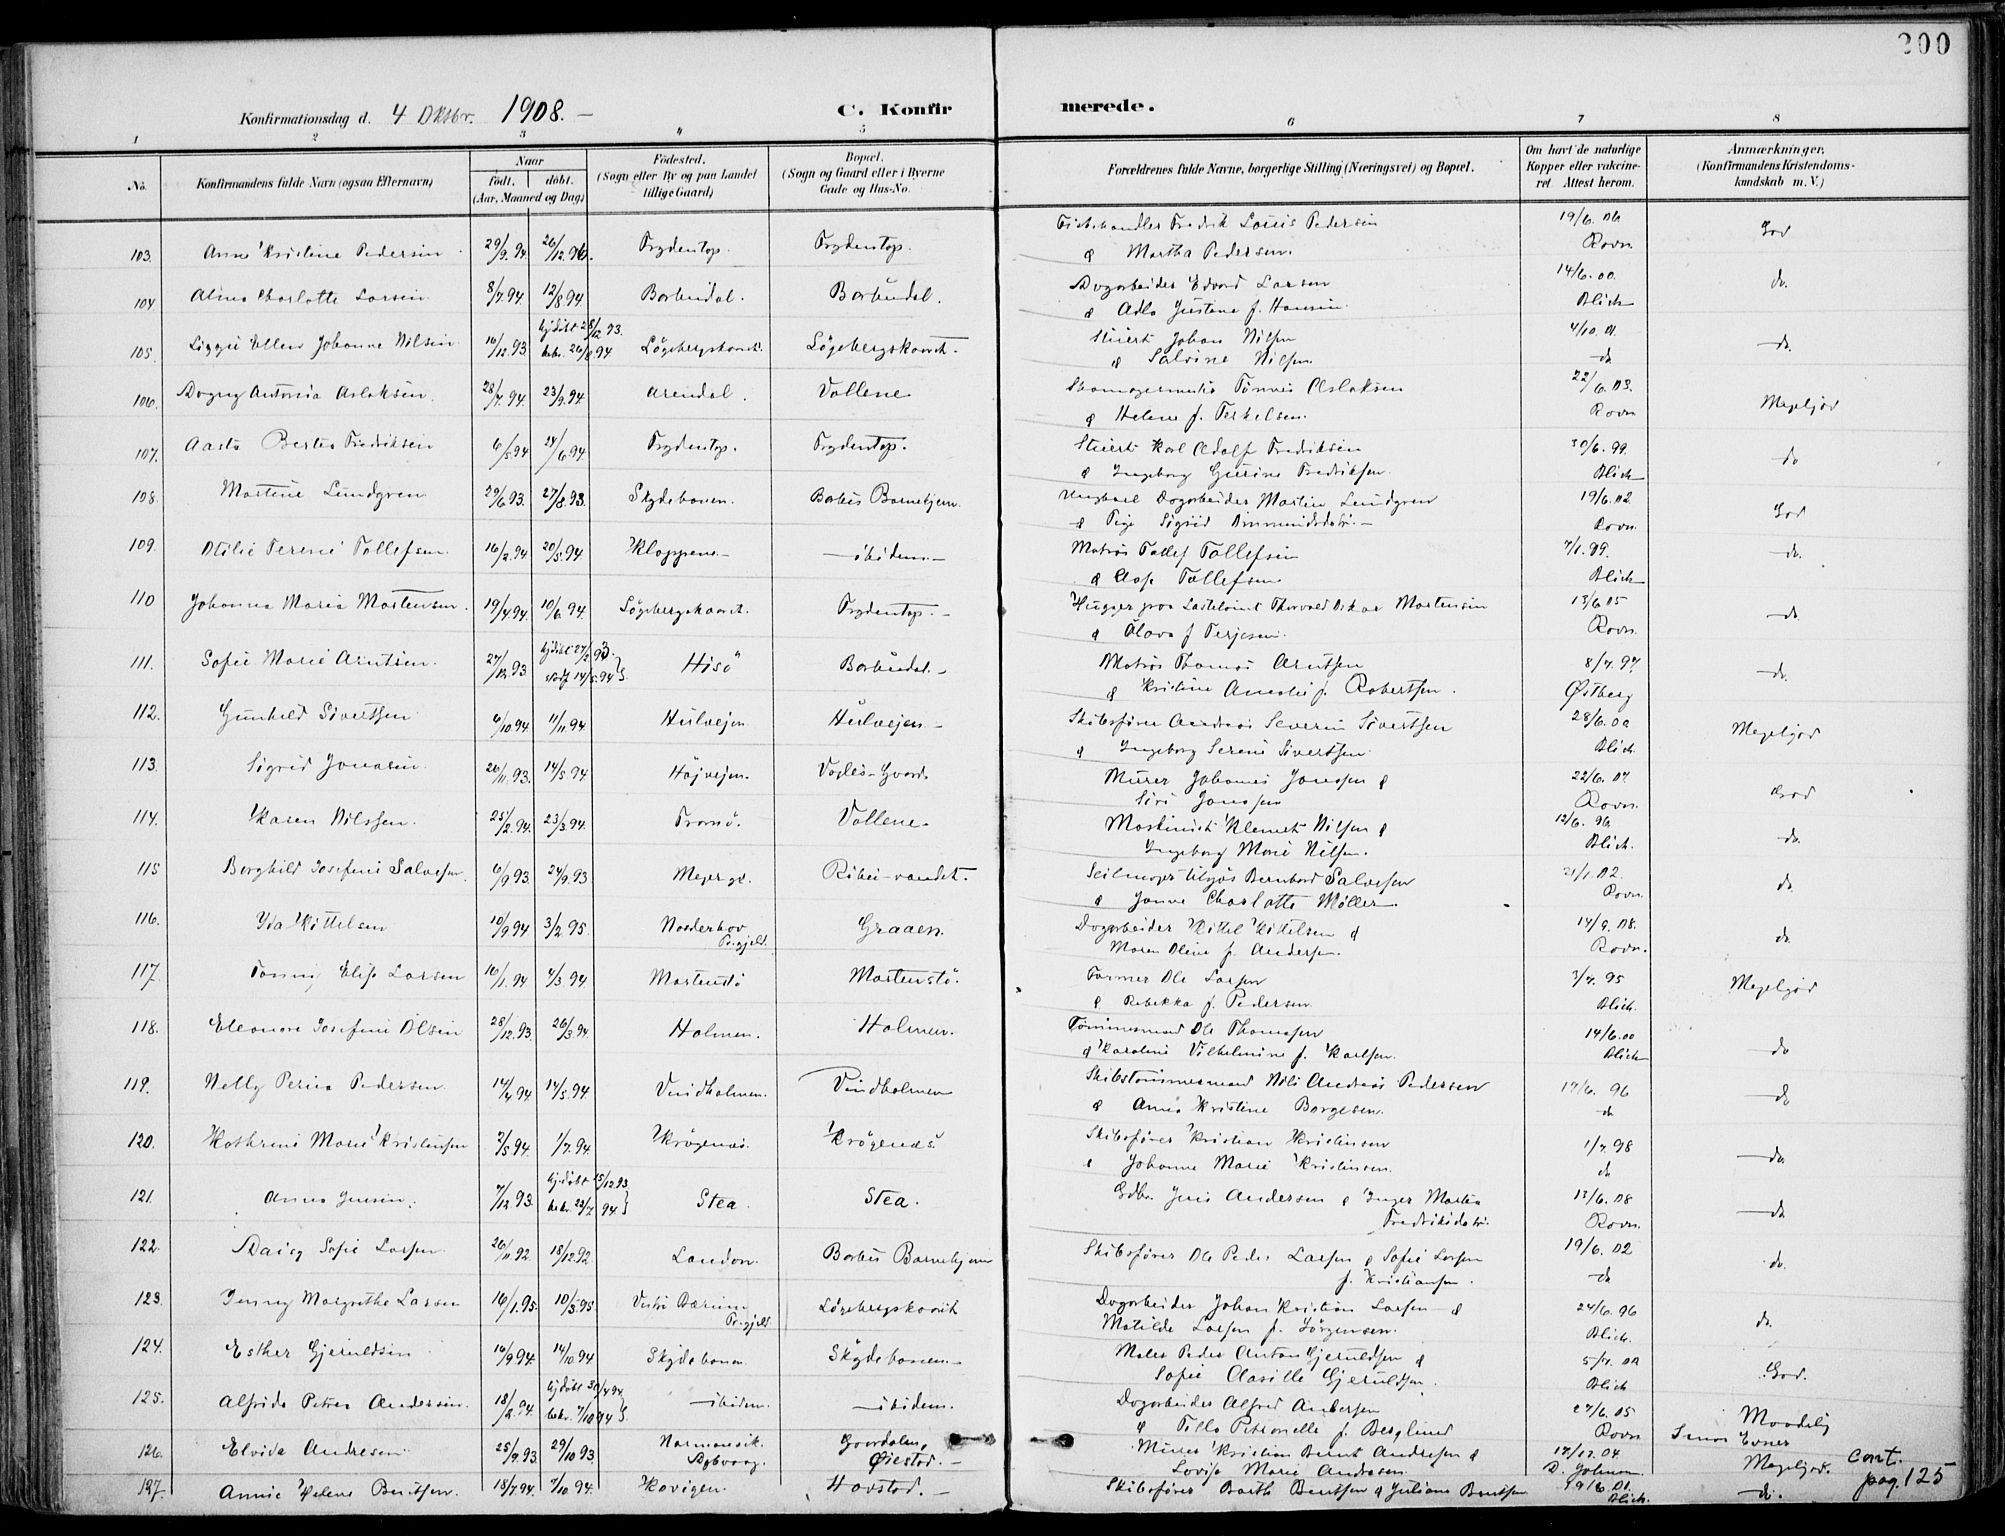 200
Konfirmationsdag d. 4 Oktbr. 1908. —
C. Konfir merede.
1 2 3 4 5 6 7 8
No.
Konfirmandens fulde Navn (ogsaa Efternavn)
Naar
født. døbt.
(Aar, Maaned og Dag)
Fødested.
(Sogn eller By og paa Landet
tillige Gaard)
Bopæl.
(Sogn og Gaard eller i Byerne
Gade og Hus-No.
Forældrenes fulde Navne, borgerlige Stilling (Næringsvei) og Bopæl.
Om havt de naturlige
Kopper eller vakcine-
ret. Attest herom.
Anmærkninger,
(Konfirmandens Kristendoms-
kundskab m. V.)
103. Anna Kristine Pedersen 29/9.94. 26/12.96. Frydentop. Frydentop. Fiskehandler Fredrik Louis Pedersen 19/6.06 God
& Martha Pedersen. Rovn.
104. Alma Charlotte Larsen 8/7.94. 12/8 94 Barbudal. Barbudal. Dagarbeider Edvard Larsen 14/6.00. do.
& Adla Justine f. Hansen Blich
105. Ellen Johanne Nilsen 16/12.93 hjdöbt 28/12 93. Lögebergskaaret. Lögebergskaaret. Stuert Johan Nilsen 4/10.01 do.
& Salvine Nilsen do
106. Dagny Antonia Aslaksen. 28/7.94. 23/9.94. Arendal. Vollene Skomagermester Tönnes Aslaksen 22/6.03. Megetgod
& Helene f. Terkelsen. Rovn
107. Aasta Bertea Fredriksen 6/5.94 24/6.94. Frydentop. Frydentop. Stuert Karl Adolf Fredriksen 30/6.99. do
& Ingeborg Gurine Fredriksen. Blich
108. Martine Lundgren 29/6 93. 27/8.93. Skydebanen. Barbus Barnehjem. Ungkarl Dagarbeider Martin Lundgren 19/6.02 God
& Pige Sigrid —  Rovn.
109. Otilie Terene Tallefsen. 16/2.94 20/5.94 Kloppene — ibidem — Matros Tallef Tallefsen 7/1.99. do.
& Aase Tallefsen Blich
110 Johanna Maria Martensen. 19/4.94 10/6.94. Lögebergskaaret. Frydentop. — Hugger paa Thorvald Oskar Martensen 13/6 05 do.
& Olava f Terjesen. Rovn.
111. Sofie Marie Arntsen. 27/12.93 hjdöbt 27/ 93. Hisö Barbudal. — Matros Thomas Arntsen 8/7.97 do.
14/5.94 & Kristine Amalie f. Robertsen. Østberg
112. Gunhild Sivertsen 6/10.94 11/11.94 Hulveien Hulveien — Skibsförer Andreas Severin Sivertsen 28/6.00 Megetgod
& Ingeborg Serene Sivertsen. Blich.
113. Sigrid Jonasen. 26/11.93. 14/5.94 Höjveien. Vogles-Gaard. Murer Johannes Jonasen & 22/6.07. God
Siri Jonasen Rovn.
114. Karen Nilssen. 25/2.94. 23/3.94. Tromö. Vollene. Maskinist Klemet Nilsen & 12/6.96. do.
Ingeborg Marie Nilsen. Blich.
115 Borghild Josefine Salvesen. 6/9 93. 24/9.93 Ribervandet. Seilmager Bernhard Salvesen 21/1.02. do.
& Janna Charlotte Møller Rovn.
116. Ida Kittelsen 10/9 94 3/2.95. Norderhov Prgjeld. Graaen. Dagarbeider Kittel Kittelsen & 14/9.08. do.
Maren Oline f. Andersen. Rovn.
117. Fanny Elise Larsen 16/1.94 4/3.94 Martenstö Martenstö. Farmer Ole Larsen 3/7.95 Megetgod
& Rebekka f. Pedersen Blich.
118. Eleonore Josefine Olsen 28/12.93. 26/3 94. Holmen. Holmen. Tömmermand Ole Thomassen 14/6.00 do
& Karoline Vilhelmine f. Karlsen. Blich
119. Nelly Perica Pedersen 14/4 94. 14/5.94. Vindholmen. Vindholmen Skibstömmermand Nils Andreas Pedersen 17/6 96 do
& Anna Kristine Borgesen. do
120. Kathrine Marie Kristensen 2/5 94. 1/7.94 Krögenæs. Krögenæs Skibsförer Kristian Kristensen 1/7.98 do.
& Johanne Marie Kristensen. do
121. Anna Jensen. 7/12 93. hjdöbt 25/12.93 Stea. Stea. Gdbr. Jens Andersen & Inger Martea 13/6.08 do
bekr. 22/7.94. Fredriksdatr. Rovn.
122. Daisy Sofie Larsen 26/11.92. 18/12.92 London. Barbus Barnehjem Skibsförer Ole Peder Larsen & Sofie Larsen 19/6.02 do.
f. Kristiansen. do
123. Jenny Margrethe Larsen 16/1.95. 10/3.95. Vestre Bærum Prgjeld. Lögebergskaaret Dagarbeider Johan Kristian Larsen & 24/6.96 do.
Matilde Larsen f. Jörgensen. Blich.
124. Esther Gjeruldsen 16/9 94. 14/10.94 Skydebanen Skydebanen — Maler Peder Anton Gjeruldsen & God.
Sofie Gjeruldsen. Blich
125. Alfrida Petrea Andersen. 18/2.94. hjdöbt 30/4 94. — ibidem. — ibidem. Dagarbeider Alfred Andersen 27/6.05 Maadelig
bekr. 7/10 94 & Tilla Petronelle f. Berglund Rovn Evner
126. Elvida Andresen 25/9.93. 29/10 93. Narmansvik. Dybvaag. Gaardalen, Øiestad. — Murer Kristian Bernt Andresen & 17/12.04 Megetgod.
Lovise Marie Andresen
127. Annie Helene Bentsen. 18/7.94. 7/10.94. Kovigen. Havstad. — Skibsfører Barth Bentsen & Juliane Bentsen 19/6.01. Blich. do.
cont.
pag. 125